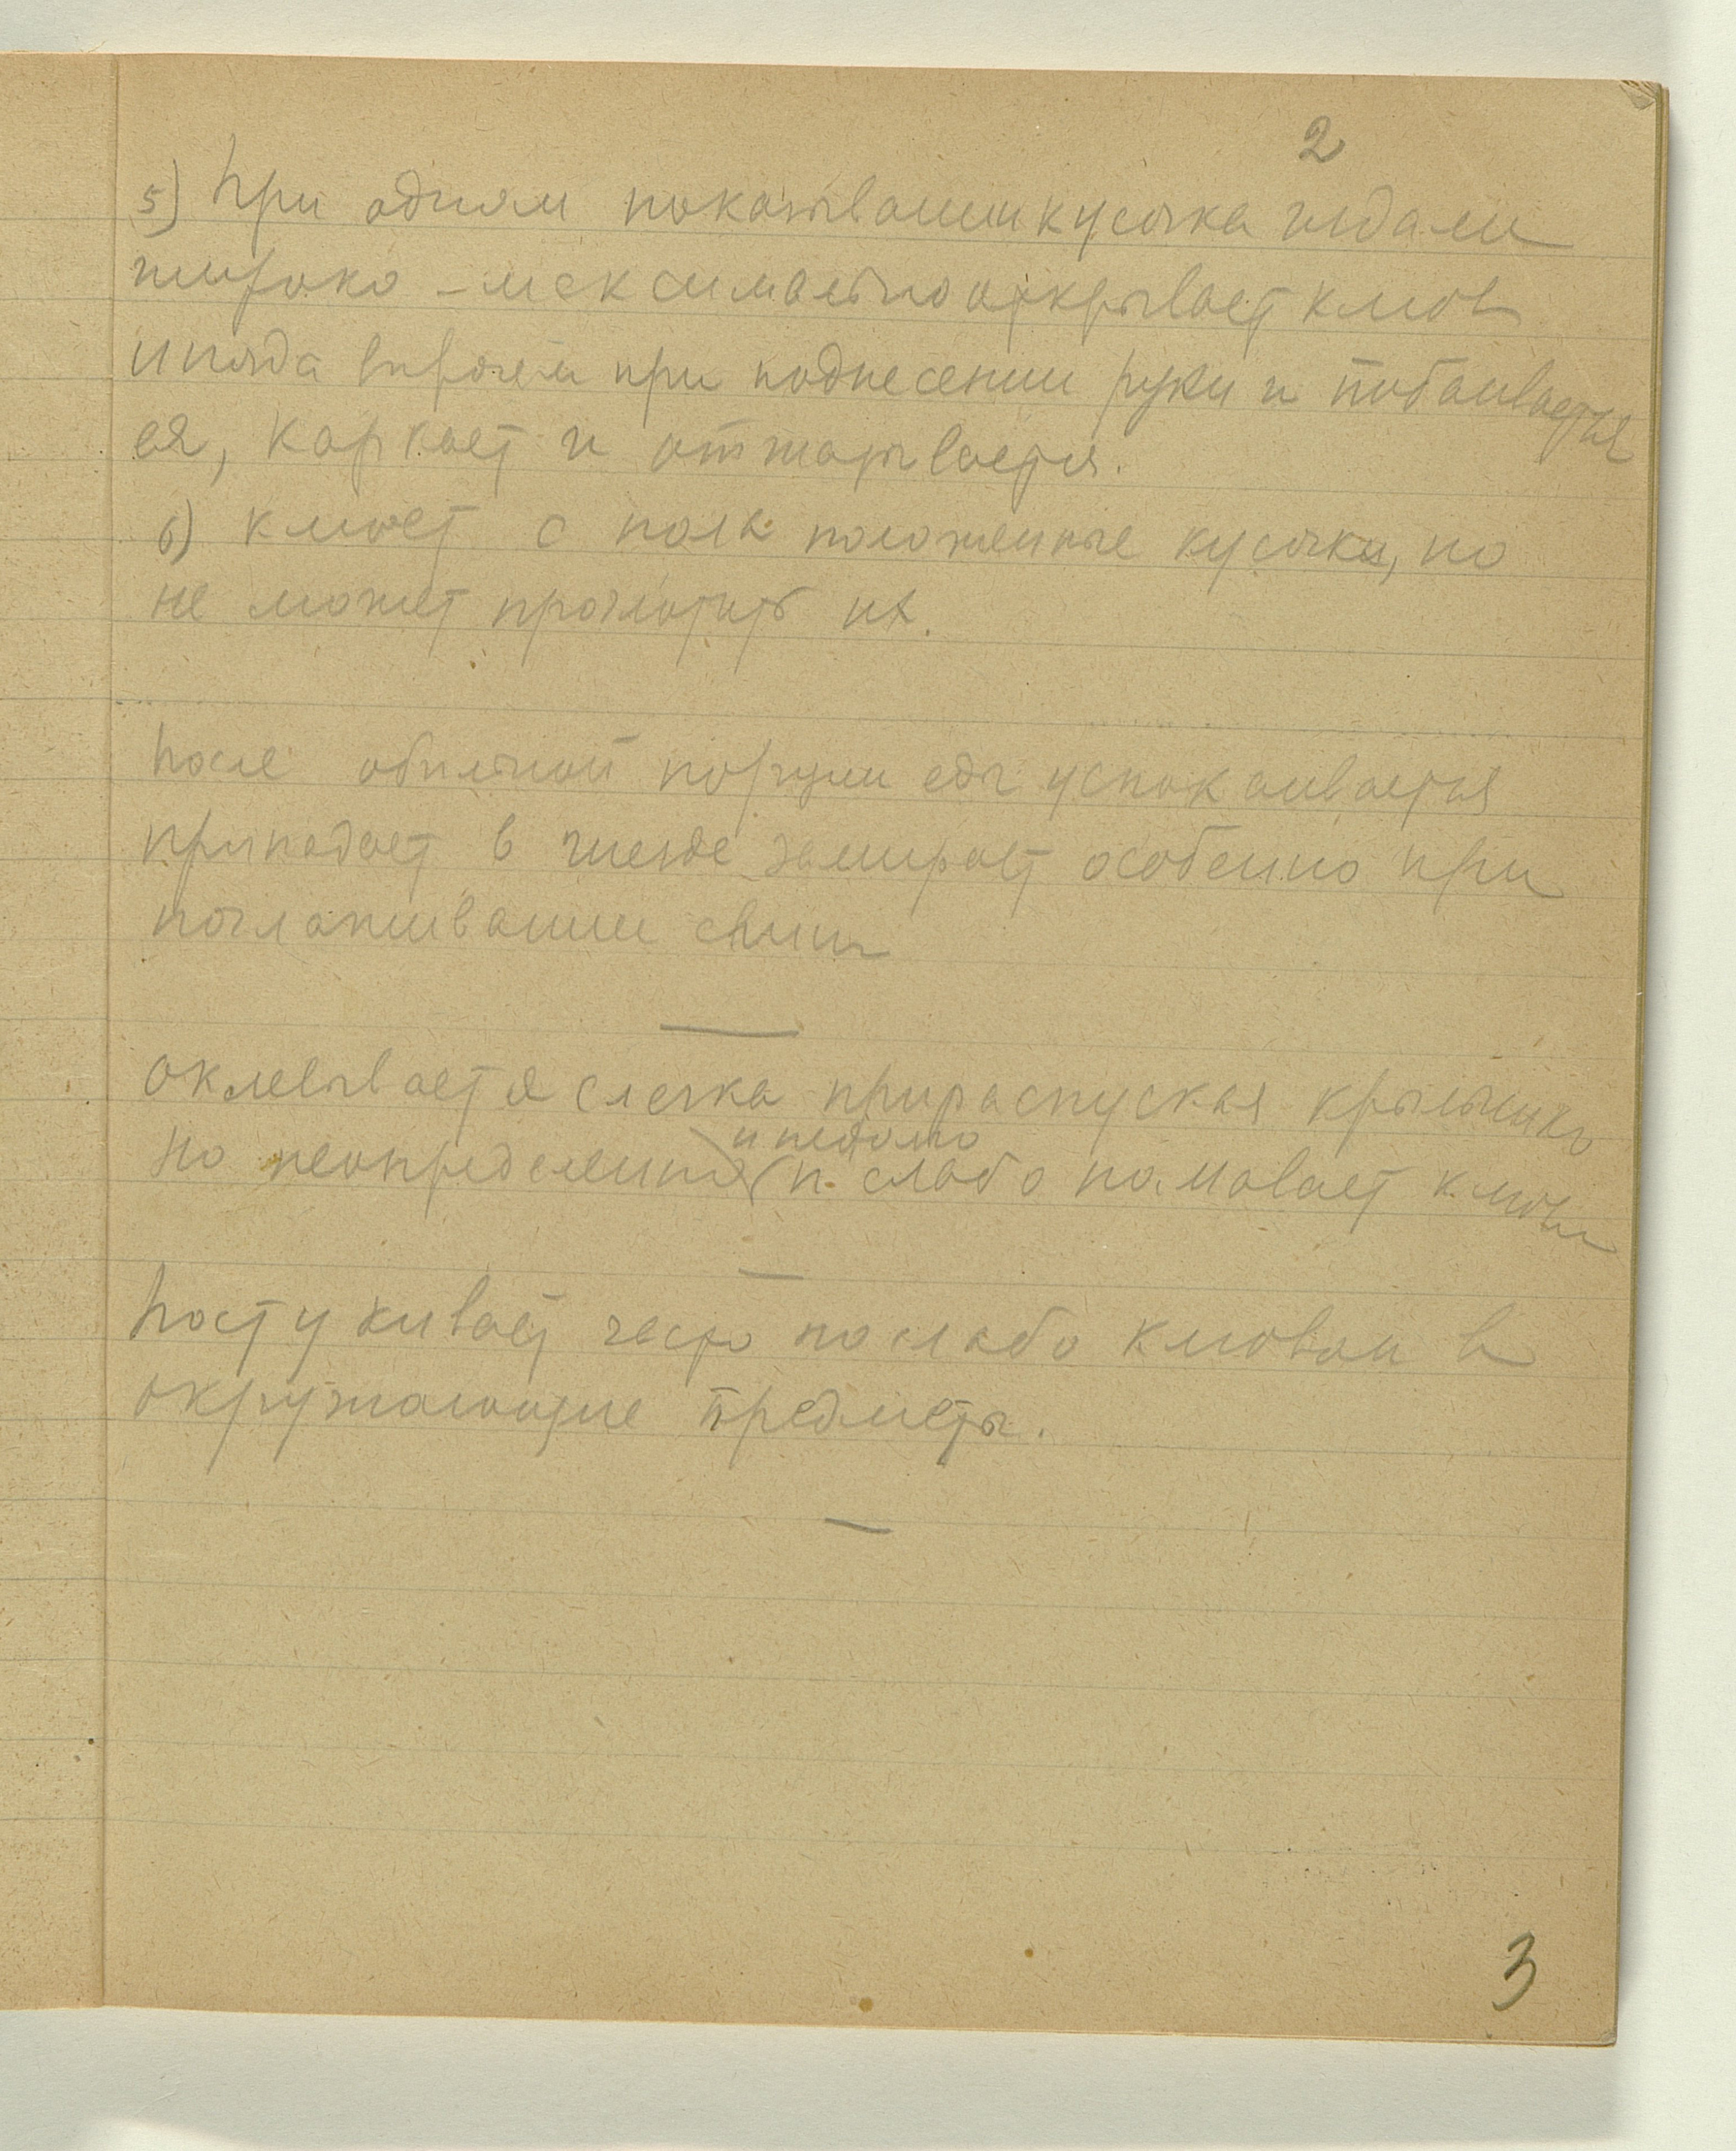 2
5) При одном показывании кусочка издали
широко – максимально открывает клюв
иногда впрочем при поднесении руки и побаивается
ся, каркает и отшатывается.
6) Клюет с пола положенные кусочки, но
не может проглотить их.
После обильной порции еды успокаивается
припадает в гнезде замирает особенно при
поглаживании спины
Оклевывается слегка прираспуская крылышко
и недолго
но неопределенно (и слабо помовает клювом
Постукивает часто но слабо клювом в
окружающие предметы.
3